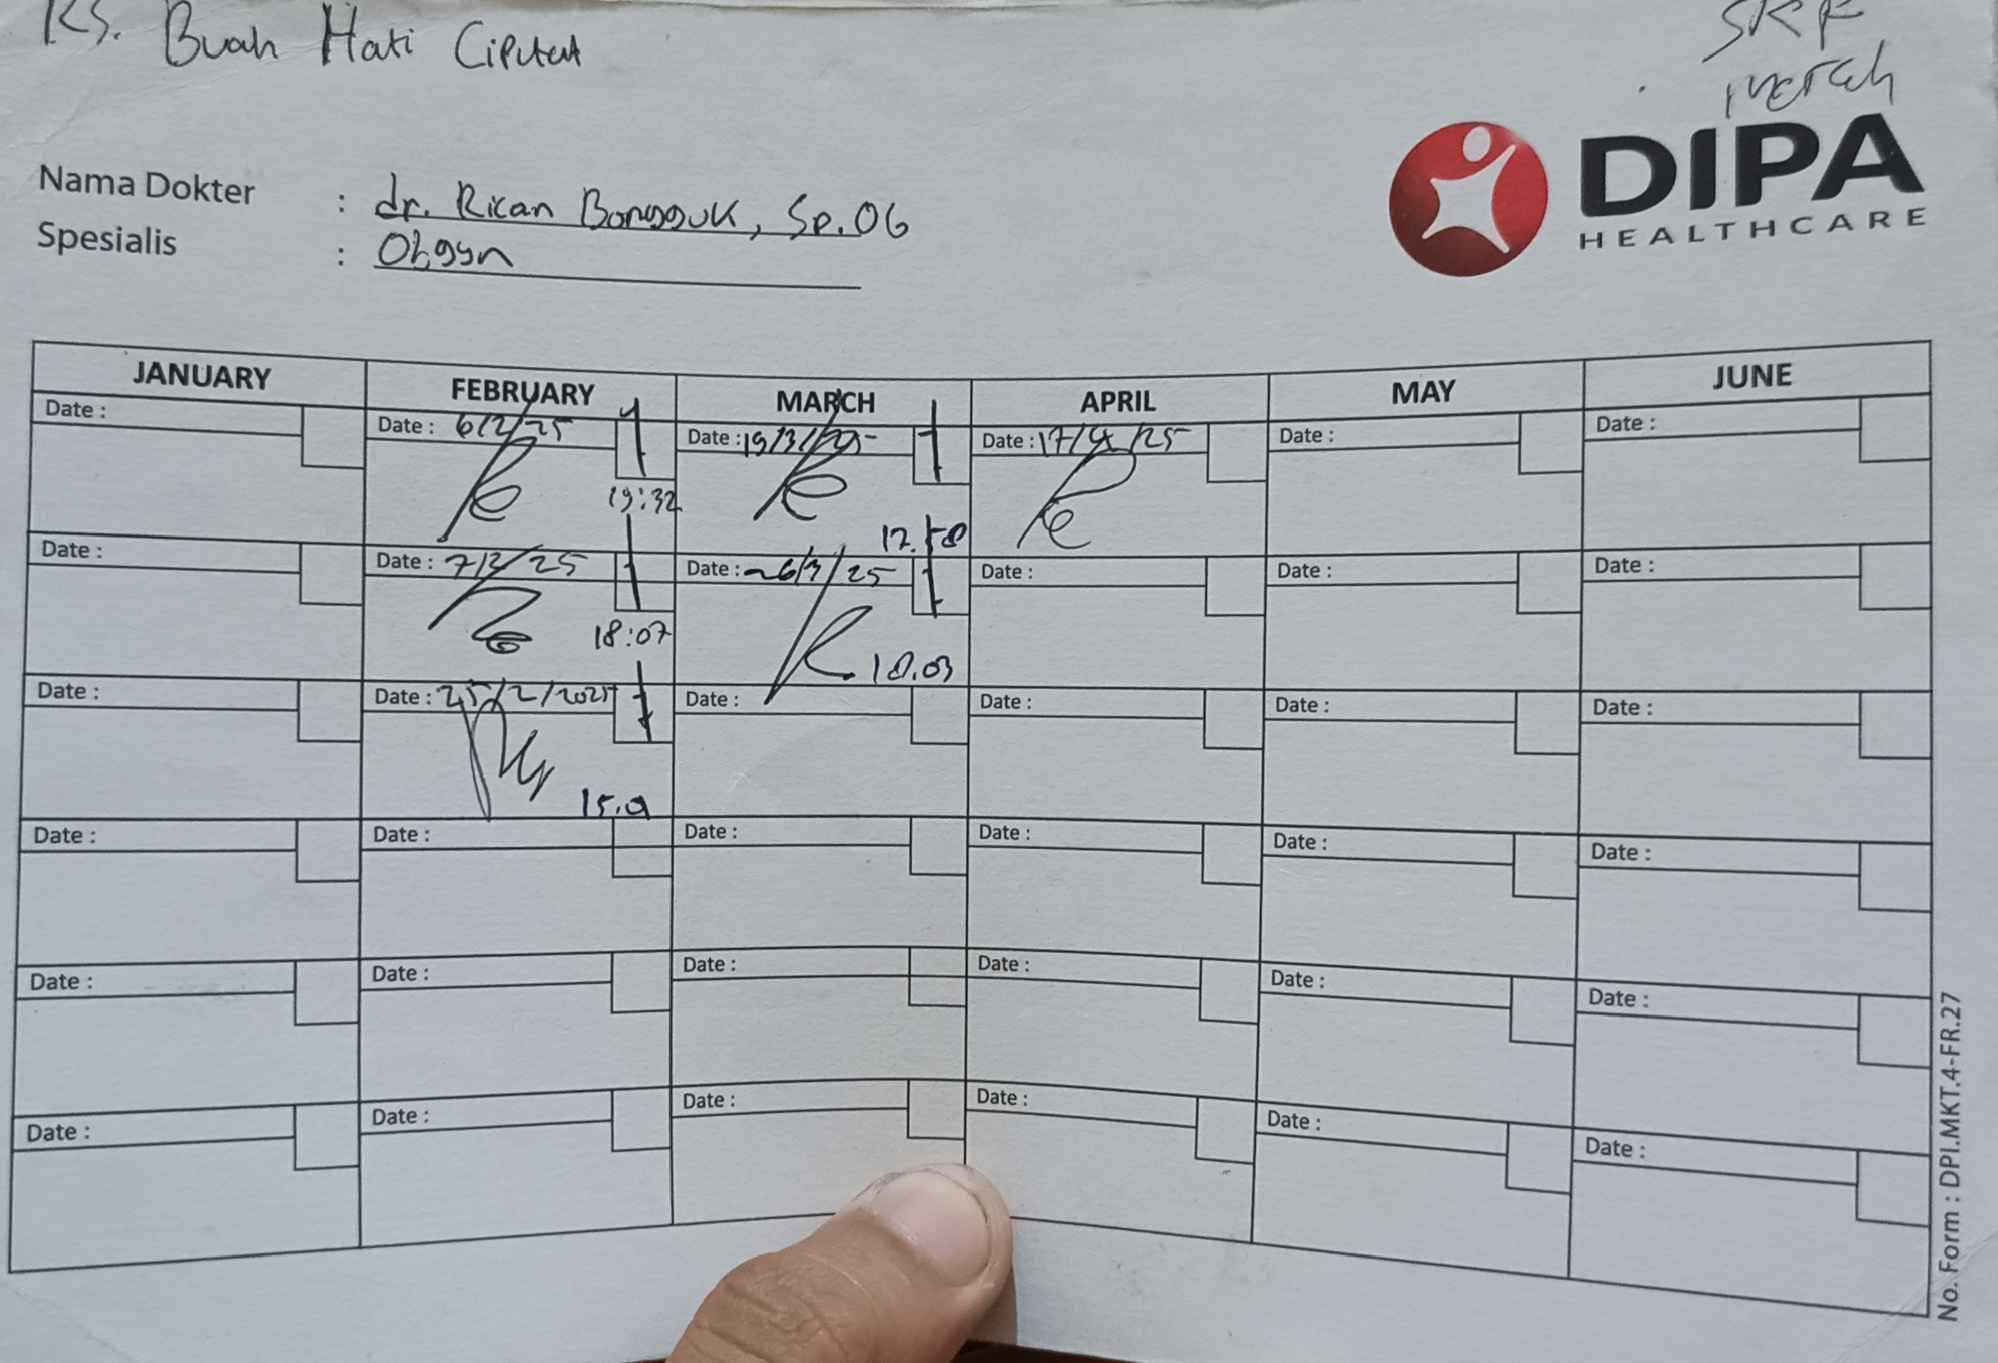 RS. Buah Hati Ciputat
SKF
merah
DIPA
HEALTHCARE
Nama Dokter : dr. Rican Bongguk, Sp.OG
Spesialis : Obgyn
JANUARY FEBRUARY MARCH APRIL MAY JUNE
Date : Date : 6/2/25 Date : 19/3/25 Date : 17/4/25 Date : Date :
19:32 12.58
Date : Date : 7/2/25 Date : 26/3/25 Date : Date : Date :
18:07 18.03
Date : Date : 25/2/2025 Date : Date : Date : Date :
Date : Date : Date : Date : Date : Date :
Date : Date : Date : Date : Date : Date :
Date : Date : Date : Date : Date : Date :
No. Form : DPI.MKT.4-FR.27